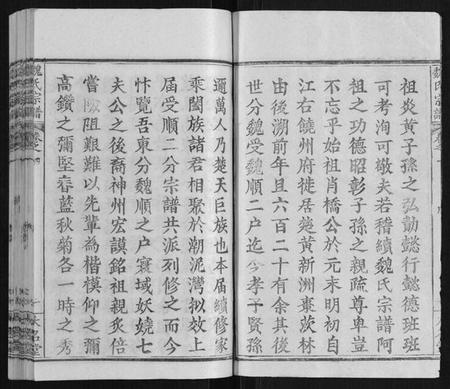 祖炎黄子孫之弘勳懿行懿德班班
可考洵可敬夫若稽續魏氏宗譜阿
祖之功德昭彰子孫之親疏尊卑豈
不忘乎始祖肖橋公於元末明初自
江右饒州府徙居楚黄新洲棗茨林
由後溯前年且六百二十有余其後
世分魏受魏順二户迄今孝子賢孫
邇萬人乃楚天巨族也本届續修家
乘闔族諸君相聚於潮泥灣拟效上
届受順二分宗譜共派列修之而今
忭覽吾東分魏順之户寰域妖嬈七
夫公之後裔神州宏謨銘祖親炙倍
嘗 阻艱難以先輩為楷模仰之彌
高鑽之彌堅春藍秋菊各一時之秀
魏氏宗譜